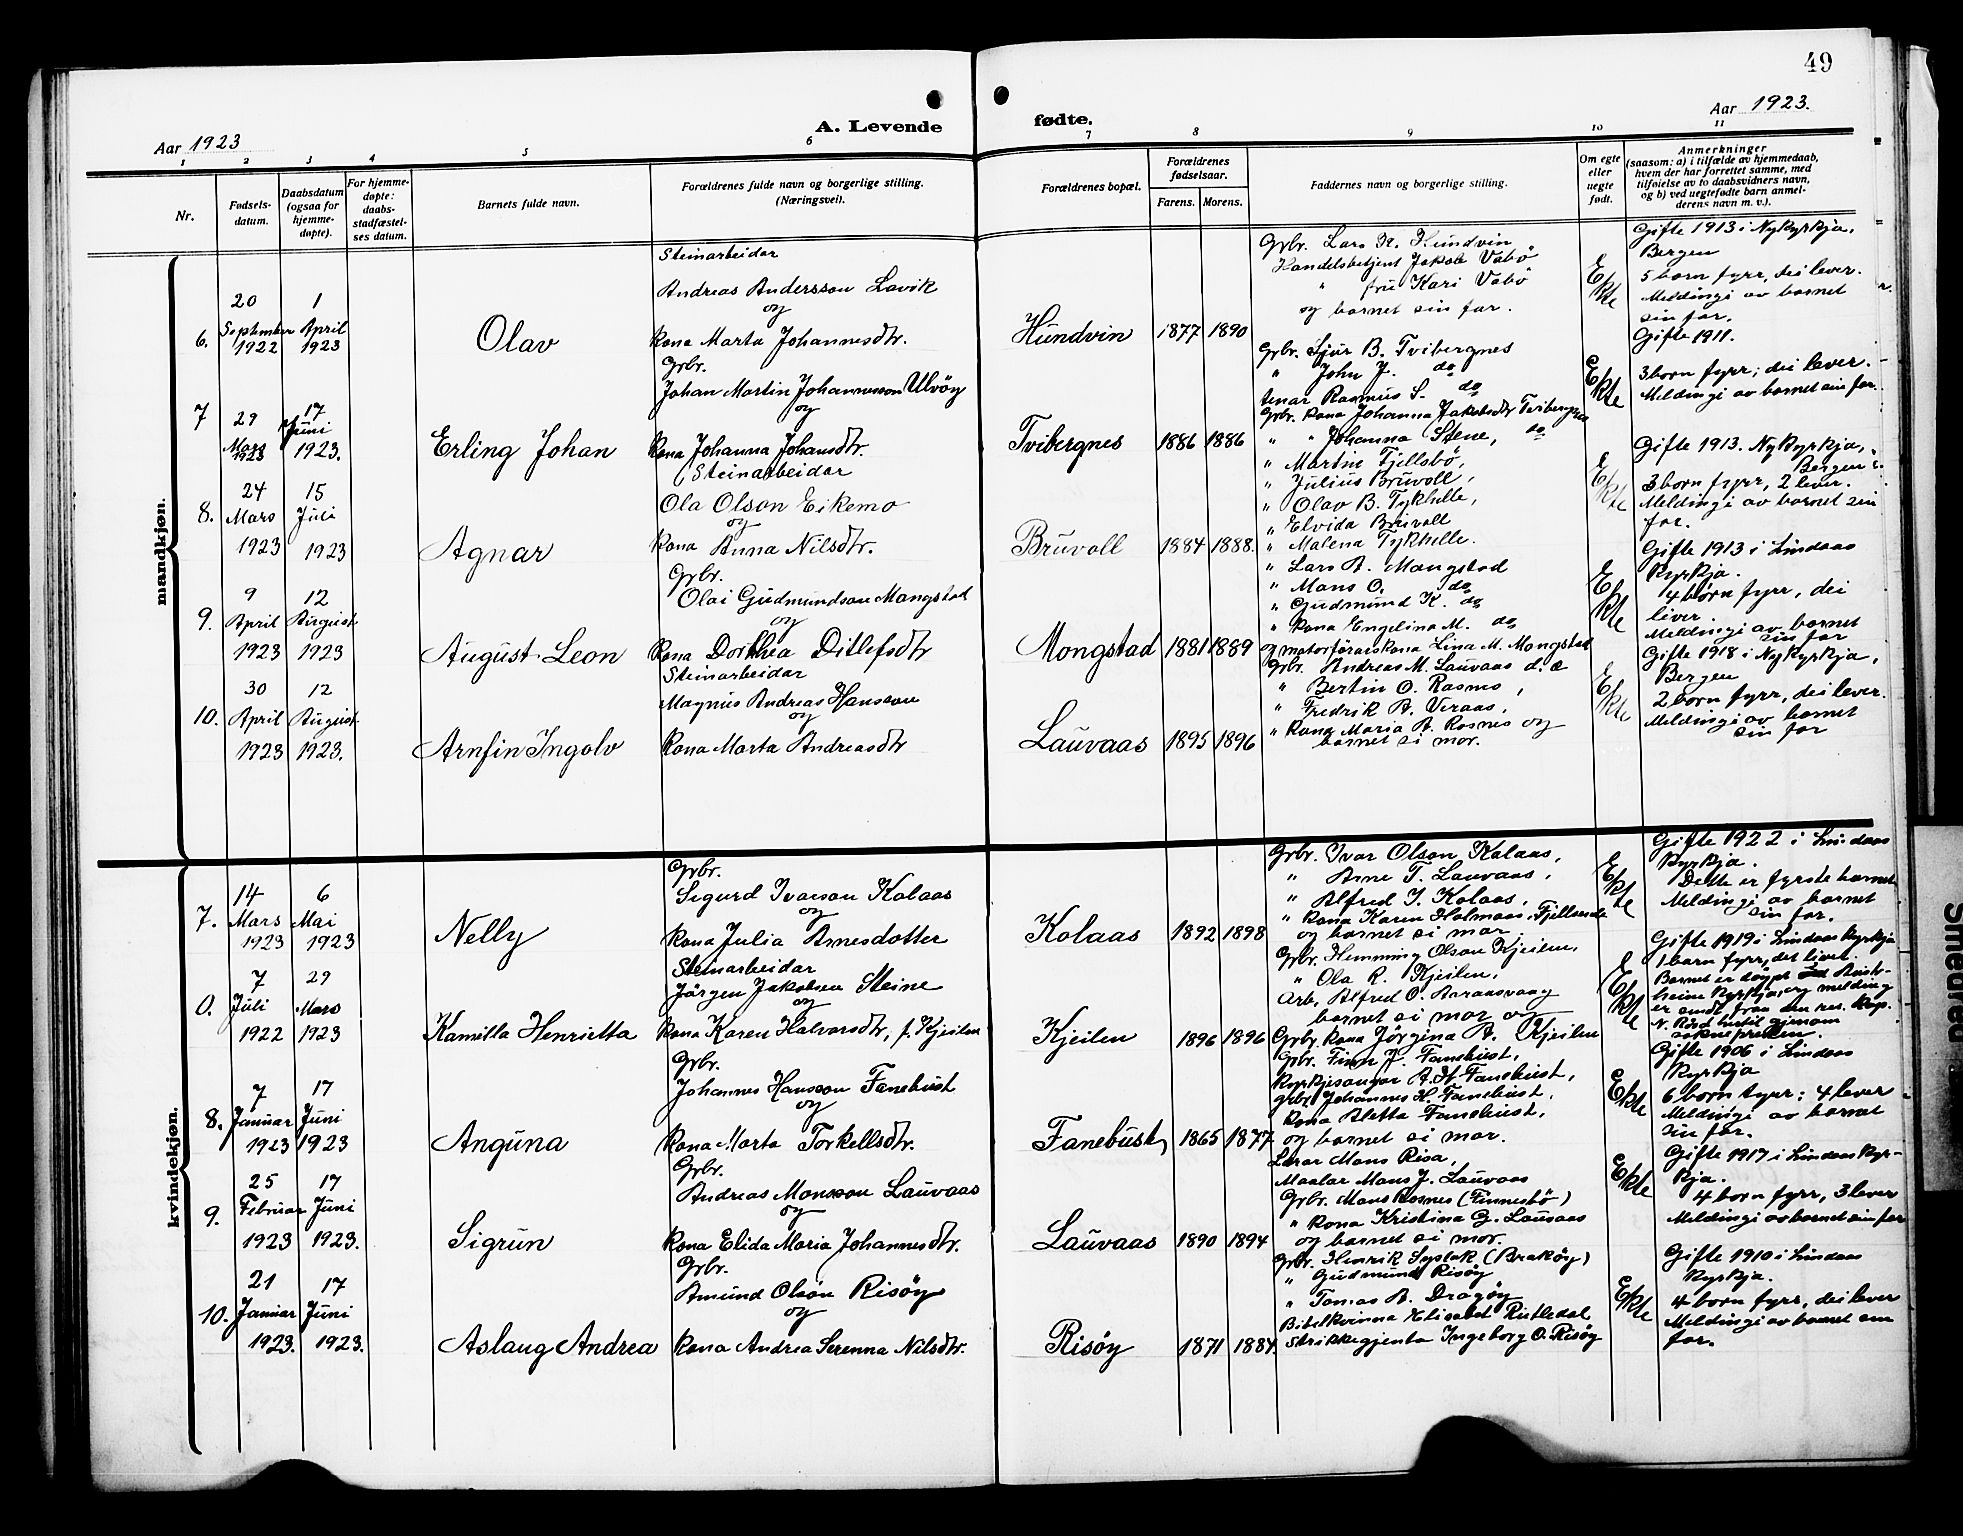 49
Aar 1923
A. Levende
fødte.
Aar 1923.
1 2 3 4 5 6 7 8 9 10 11
Nr.
Fødsels-
datum.
Daabsdatum
(ogsaa for
hjemme-
døpte).
For hjemme-
døpte:
daabs-
stadfæstel-
ses datum.
Barnets fulde navn.
Forældrenes fulde navn og borgerlige stilling.
(Næringsvei).
Forældrenes bopæl.
Forældrenes
fødselsaar.
Farens. Morens.
Faddernes navn og borgerlige stilling.
Om egte
eller
uegte
født.
Anmerkninger
(saasom: a) i tilfælde av hjemmedaab,
hvem der har forrettet samme, med
tilføielse av to daabsvidners navn,
og b) ved uegtefødte barn anmel-
derens navn m. v.).
mandkjøn.
6.
20
September
1922
1
April
1923
Olav
Steinarbeidar
Andreas Andersson Lavik
og
kona Marta Johannesdtr.
Hundvin
1877 1890
Grbr. Lars K. Hundvin
Handelsbetjent Jakob Vabö
" fru Kari Vabö
og barnet sin far.
Ekte
Gifte 1913 i Nykyrkja,
Bergen
5 born fyrr, dei lever.
Meldingi av barnet
sin far.
7
29
Mars
1923
17
Juni
1923.
Erling Johan
Grbr.
Johan Martin Johannesson Ulvöy
og
kona Johanna Johansdtr.
Tvibergnes
1886 1886
Grbr. Sjur B. Tvibergnes
" John J. do
Einar Rasmus S. do
Grbr. kona Johanna Jakobsdtr Tvibergnes
" " Johanna Stene, do
Ekte
Gifte 1911.
3 born fyrr; dei lever.
Meldingi av barnet sin far.
8.
24
Mars
1923
15
Juli
1923
Agnar
Steinarbeidar
Ola Olson Eikemo
og
kona Anna Nilsdtr.
Bruvoll
1884 1888.
" Martin Fjellsbö,
" Julius Bruvoll,
" Olav B. Tykhelle,
" Elvida Bruvoll
" Malena Tykhelle.
Ekte
Gifte 1913. Nykyrkja,
Bergen
3 born fyrr, 2 lever.
Meldingi av barnet sin
far.
9.
9
April
1923
12
August
1923
August Leon
Grbr.
Olai Gudmundson Mongstad
og
kona Dorthea Ditlefsdtr
Mongstad
1881 1889
" Lars A. Mongstad
" Mons O. do
" Gudmund K. do
" kona Engelina M. do
og motorförarkona Lina M. Mongstad
Ekte
Gifte 1913 i Lindaas
kyrkja.
4 born fyrr, dei
liver.
Meldingi av barnet
sin far
10.
30
April
1923
12
August
1923.
Arnfin Ingolv
Steinarbeidar
Magnus Andreas Hansson
og
kona Marta Andreasdtr
Lauvaas
1895 1896
Grbr. Andreas M. Lauvaas d. e
" Bertin O. Rasnes,
" Fredrik A. Veraas,
" kona Maria A. Rosnes og
barnet si mor.
Ekte
Gifte 1918 i Nykyrkja,
Bergen
2 born fyrr, dei lever.
Meldingi av barnet
sin far
kvindekjøn.
7.
14
Mars
1923
6
Mai
1923
Nelly
Grbr.
Sigurd Ivarson Kolaas
og
kona Julia Arnesdotter
Kolaas
1892 1898
Grbr. Ivar Olson Kolaas,
" Arne T. Lauvaas,
" Alfred I. Kolaas,
" kona Karen Holmaas, Fjellsende
og barnet si mor
Ekte
Gifte 1922 i Lindaas
kyrkja.
Dette er fyrste barnet
Meldingi av barnet
sin far.
0.
7
Juli
1922
29
Mars
1923
Kamilla Henrietta
Steinarbeidar
Jörgen Jakobsen Steine
og
kona Karen Halvorsdtr, f. Kjeilen
Kjeilen
1896 1896
Grbr. Hemming Olson Kjeilen,
" Ola R. Kjeilen,
Arb. Alfred O. Aaraasvaag
barnet si mor og
Grbr. kona Jörgina A. Kjeilen
Ekte
Gifte 1919 i Lindaas kyrkja
1 barn fyrr, det livet.
Barnet er döypt
heim kyrkja, og melding
er sendt fraa den res. kap.
hertil gjenom
soknepresten.
8.
7
Januar
1923
17
Juni
1923
Anguna
Grbr.
Johannes Hansson Fanebust
og
kona Marta Torkellsdtr.
Fanebust
1865 1877
Grbr. Finn J. Fanebust,
Kyrkjesongar A. H. Fanebust,
Grbr. Johannes H. Fanebust,
kona Aletta Fanebust,
og barnet si mor.
Ekte
Gifte 1906 i Lindaas
kyrkja
6 born fyrr; 4 lever
Meldingi av barnet
sin far.
9.
25
Februar
1923
17
Juni
1923.
Sigrun
Grbr.
Andreas Monsson Lauvaas
og
kona Elida Maria Johannesdtr.
Lauvaas
1890 1894
Lærar Mons Risa,
Maalar Mons J. Lauvaas
Grbr. Mons Rosnes (Finnesbö)
" kona Kristina G. Lauvaas
og barnet si mor.
Ekte
Gifte 1917 i Lindaas kyr-
kja.
4 born fyrr, 3 lever
Meldingi av barnet sin far
10.
21
Januar
1923.
17
Juni
1923.
Aslaug Andrea
Grbr.
Amund Olson Risöy
og
kona Andrea Serenna Nilsdtr.
Risöy
1871 1884
Grbr. Henrik Syslak (Braköy)
" Gudmund Risöy
" Tomas A. Dragöy
Bibelkvinna Elisabet Rutledal
Strikkegjenta Ingeborg O. Risöy
Ekte
Gifte 1910 i Lindaas
kyrkja.
4 born fyrr, dei lever
Meldingi av barnet sin
far.